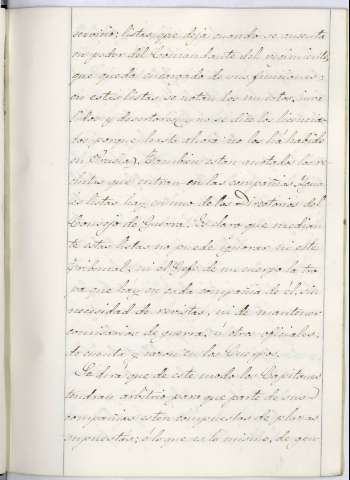 servicio; listas que deja cuando se ausenta
en poder del Comandante del regimiento,
que queda encargado de sus funciones:
en estas listas se notan los muertos, inva
lidos y desertores; y no se dice los licencia
dos porque hasta ahora no los há habido
en Prusia. Tambien estan anotados los re
clutas que entran en las compañias. Igua
les listas hay en uno de los Directorios del
Consejo de Guerra. Es claro que median
te estas listas no puede ignorar ni este
tribunal, ni el Gefe de un cuerpo la tro
pa que hay en cada compañia de él, sin
necesidad de revistas, ni de mantener
comisarios de guerra, ú otros oficiales
de cuenta y razon en los Cuerpos.
Se dirá que de este modo los Capitanes
tendran arbitrio para que parte de sus
compañias esten compuestas de plazas
supuestas; ó lo que es lo mismo, de gen